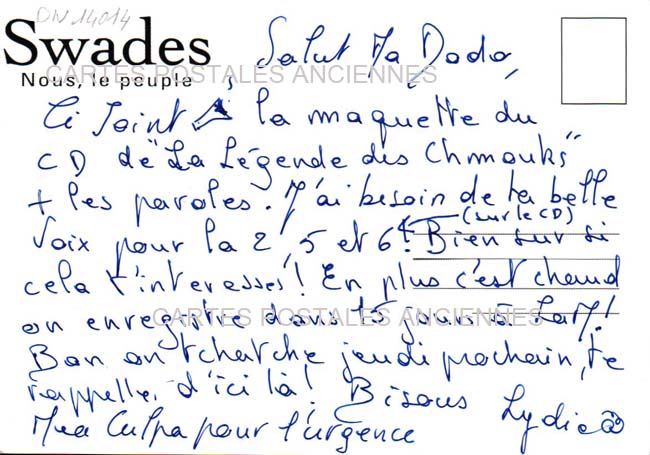 DN 14014
Swades
Nous, le peuple
CARTES POSTALES ANCIENNES
Salut Ma Dodo,
Ci Joint la maquette du
CD de "La Légende des Chmouks"
+ les paroles. J'ai besoin de ta belle
(sur le CD)
Voix pour la 2, 5 et 6! Bien sur si
cela t'interesses! En plus c'est chaud
on enregistre dans 15 jours à
CARTES POSTALES ANCIENNES
Bon on tchatche jeudi prochain, te
rappelle d'ici là! Bisous Lydie
Mea Culpa pour l'urgence